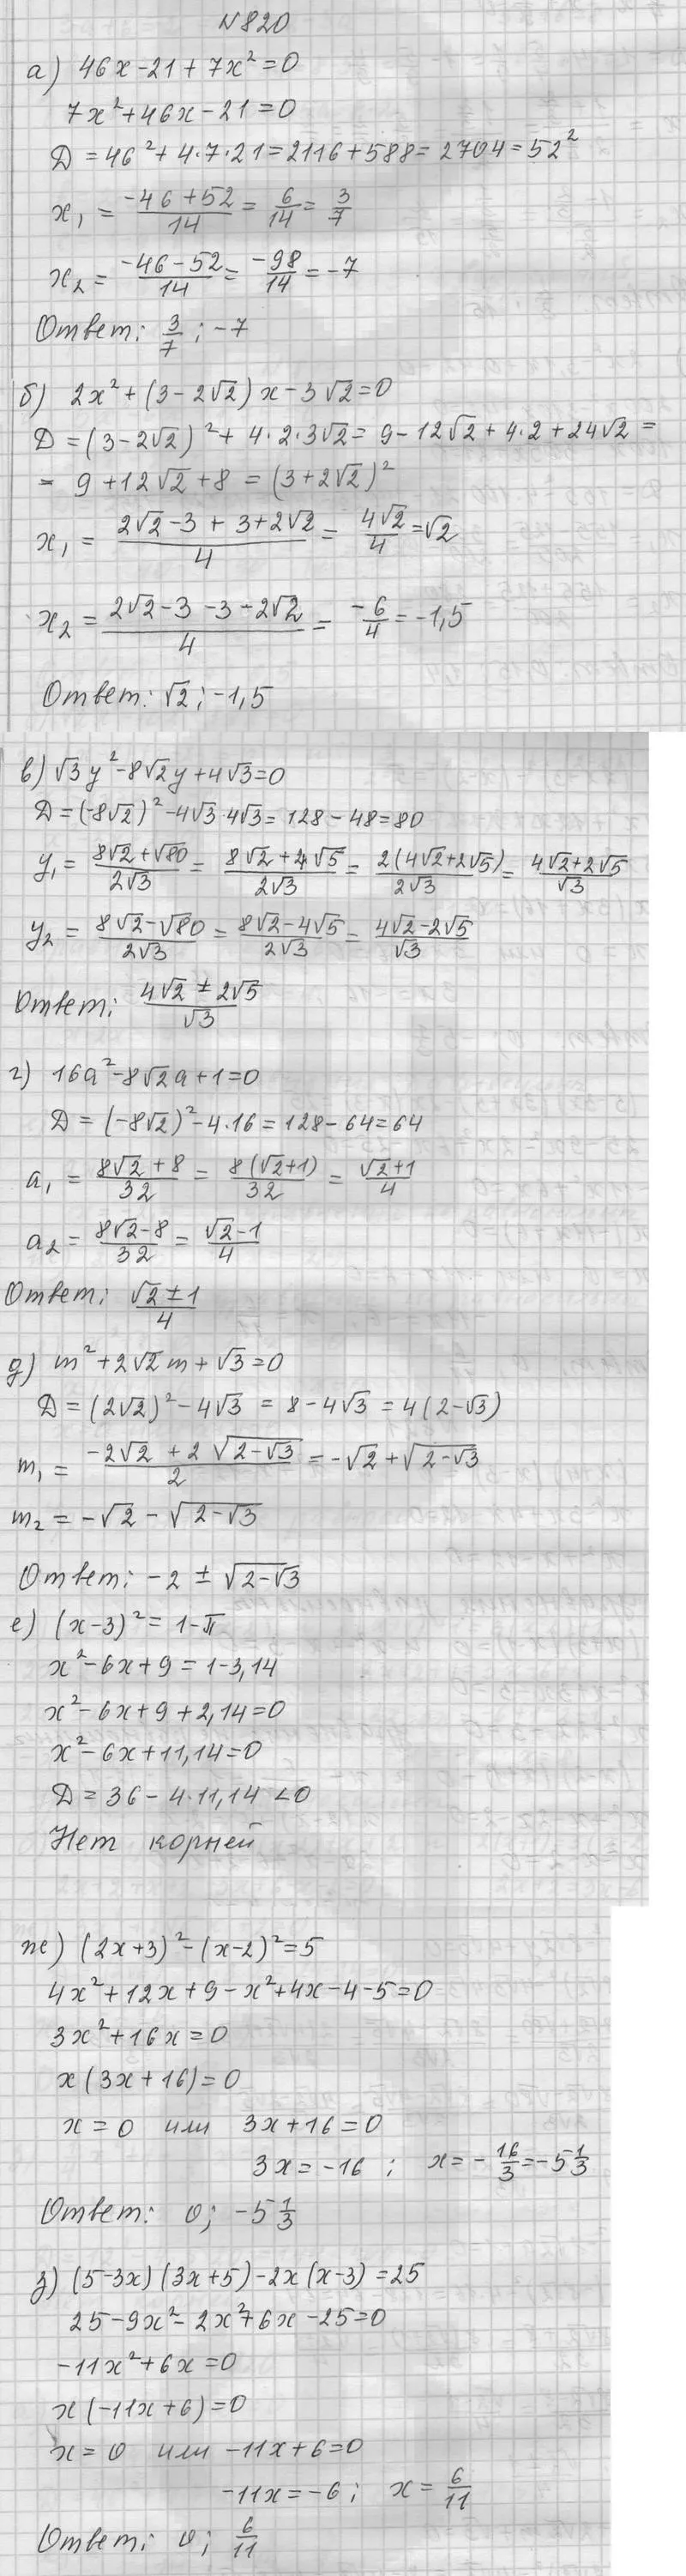 №820
а) 46x-21+7x²=0
7x²+46x-21=0
Д=46²+4·7·21=2116+588=2704=52²
x₁ = (-46+52)/14 = 6/14 = 3/7
x₂ = (-46-52)/14 = -98/14 = -7
Ответ: 3/7; -7
б) 2x²+(3-2√2)x-3√2=0
Д=(3-2√2)²+4·2·3√2=9-12√2+4·2+24√2=
= 9+12√2+8=(3+2√2)²
x₁ = (2√2-3+3+2√2)/4 = 4√2/4 = √2
x₂ = (2√2-3-3-2√2)/4 = -6/4 = -1,5
Ответ: √2; -1,5
в) √3y²-8√2y+4√3=0
Д=(-8√2)²-4√3·4√3=128-48=80
y₁ = (8√2+√80)/2√3 = (8√2+4√5)/2√3 = 2(4√2+2√5)/2√3 = (4√2+2√5)/√3
y₂ = (8√2-√80)/2√3 = (8√2-4√5)/2√3 = (4√2-2√5)/√3
Ответ: (4√2±2√5)/√3
г) 16a²-8√2a+1=0
Д=(-8√2)²-4·16=128-64=64
a₁ = (8√2+8)/32 = 8(√2+1)/32 = (√2+1)/4
a₂ = (8√2-8)/32 = (√2-1)/4
Ответ: (√2±1)/4
д) m²+2√2m+√3=0
Д=(2√2)²-4√3=8-4√3=4(2-√3)
m₁ = (-2√2+2√(2-√3))/2 = -√2+√(2-√3)
m₂ = -√2-√(2-√3)
Ответ: -2±√(2-√3)
е) (x-3)²=1-π
x²-6x+9=1-3,14
x²-6x+9+2,14=0
x²-6x+11,14=0
Д=36-4·11,14<0
Нет корней
ж) (2x+3)²-(x-2)²=5
4x²+12x+9-x²+4x-4-5=0
3x²+16x=0
x(3x+16)=0
x=0 или 3x+16=0
3x=-16; x=-16/3=-5 1/3
Ответ: 0; -5 1/3
з) (5-3x)(3x+5)-2x(x-3)=25
25-9x²-2x²+6x-25=0
-11x²+6x=0
x(-11x+6)=0
x=0 или -11x+6=0
-11x=-6; x=6/11
Ответ: 0; 6/11